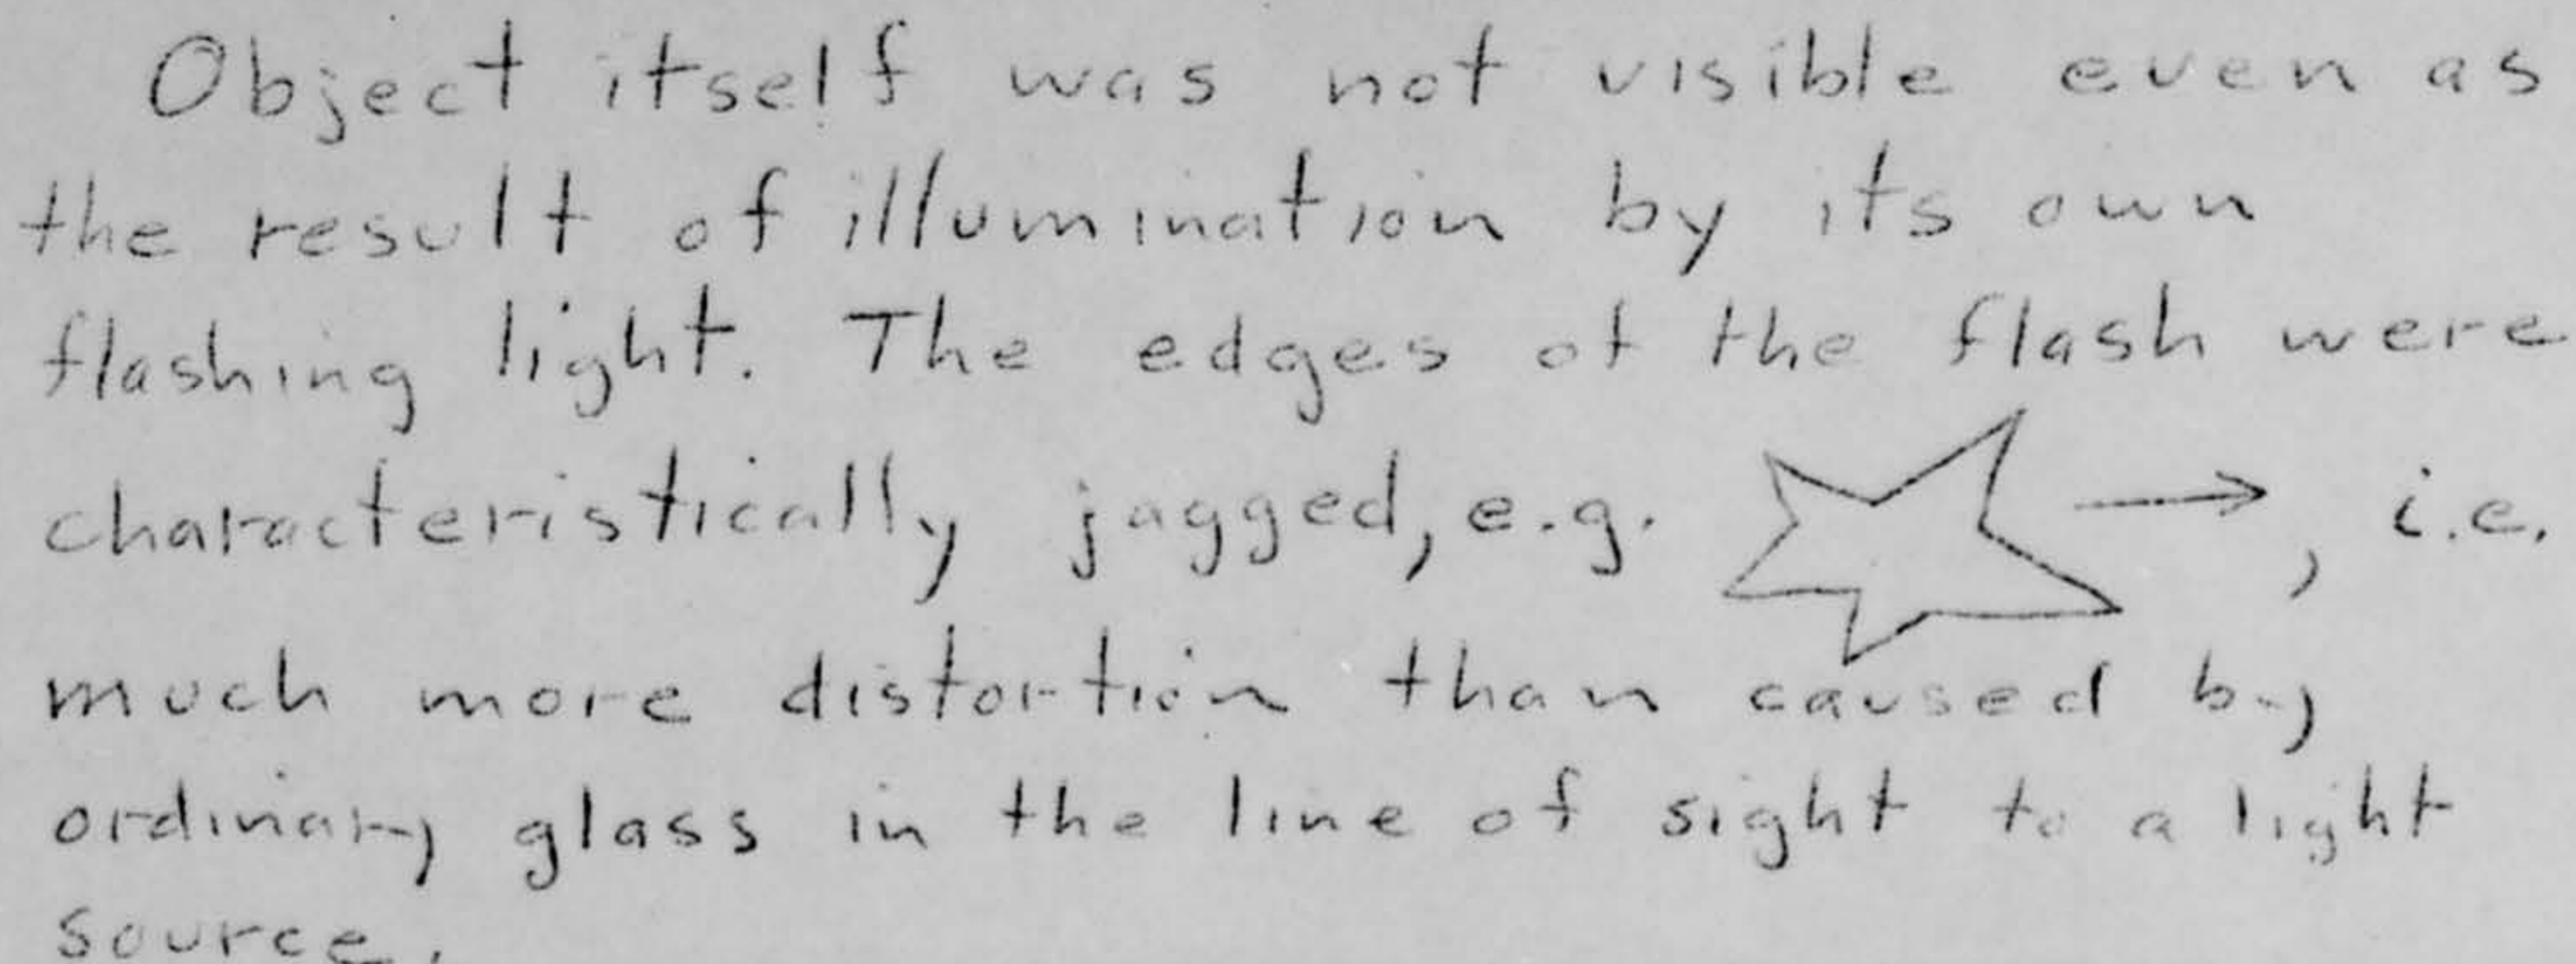 Object itself was not visible even as
the result of illumination by its own
flashing light. The edges of the flash were
characteristically jagged, e.g. → , i.e.
much more distortion than caused by
ordinary glass in the line of sight to a light
source.